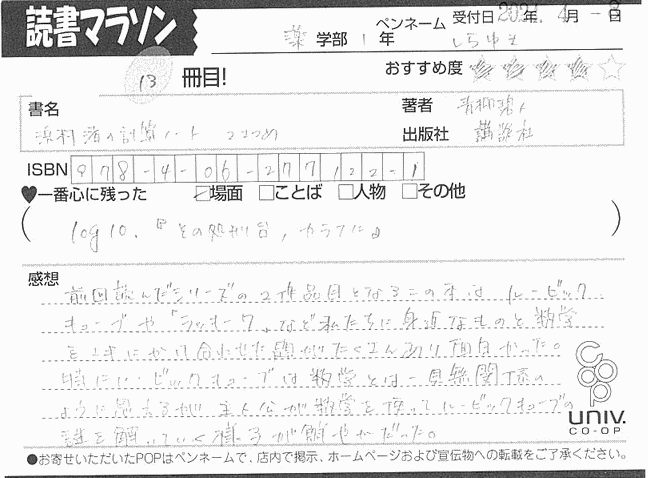 読書マラソン
薬 学部 1 年
ペンネーム しらゆき
受付日 2021年 4月 -8日
13 冊目!
おすすめ度 ★★★★☆
書名
浜村渚の計算ノート 2さつめ
著者 青柳碧人
出版社 講談社
ISBN 978-4-06-277122-1
♥一番心に残った ☑場面 □ことば □人物 □その他
( log10.『その処刑台, カラフル』 )
感想
前回読んだシリーズの2作品目となるこの本は、ルービック
キューブや「ラッキー7」など私たちに身近なものと数学
を上手にかけ合わせた題がたくさんあり面白かった。
特にルービックキューブは数学とは一見無関係の
ように思えるが主人公が数学を使ってルービックキューブの
謎を解いていく様子が鮮やかだった。
coop
UNIV.
CO-OP
●お寄せいただいたPOPはペンネームで、店内で掲示、ホームページおよび宣伝物への転載をご了承ください。